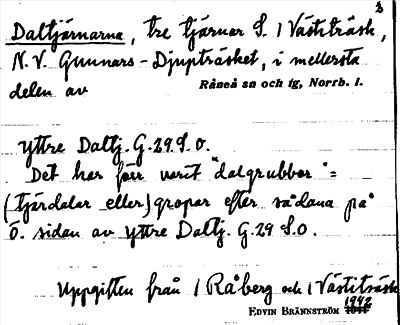 3
Daltjärnarna, tre tjärnar S. 1 Västiträsk,
N.V. Gunnars-Djupträsket, i mellersta
delen av Råneå sn och tg, Norrb. l.
yttre Daltj. G.29.S.O.
Det har förr varit "dalgrubbor" =
(tjärdalar eller) gropar efter sådana på
Ö. sidan av yttre Daltj. G.29 S.O.
Uppgiften från 1 Råberg och 1 Västiträsk
1942
EDVIN BRÄNNSTRÖM